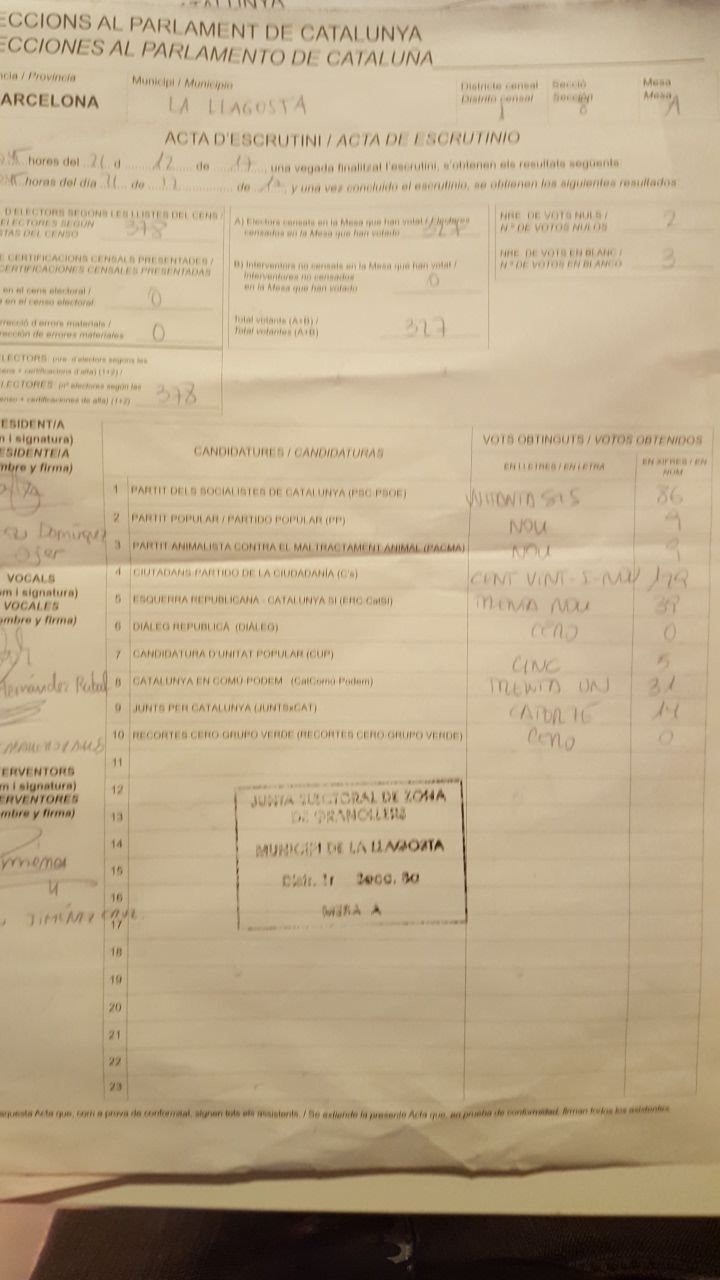 ECCIONS AL PARLAMENT DE CATALUNYA
ECCIONES AL PARLAMENTO DE CATALUÑA
ncia / Provincia
Municipi / Municipio
Districte censal
Distrito censal
Secció
Sección
Mesa
Mesa
ARCELONA
LA LLAGOSTA
1
8
A
ACTA D'ESCRUTINI / ACTA DE ESCRUTINIO
hores del 21 d 12 de 17, una vegada finalitzat l'escrutini, s'obtenen els resultats següents
horas del día 21 de 12 de 17, y una vez concluido el escrutinio, se obtienen los siguientes resultados
D'ELECTORS SEGONS LES LLISTES DEL CENS /
ELECTORES SEGÚN
STAS DEL CENSO
378
E CERTIFICACIONS CENSALS PRESENTADES /
CERTIFICACIONES CENSALES PRESENTADAS
en el cens electoral /
en el censo electoral
0
rrecció d'errors materials /
rección de errores materiales
0
LECTORS
LECTORES
378
A) Electors censats en la Mesa que han votat / Electores
censados en la Mesa que han votado
327
B) Interventors no censats en la Mesa que han votat /
Interventores no censados
en la Mesa que han votado
0
Total votants (A+B) /
Total votantes (A+B)
327
NRE. DE VOTS NULS /
N.º DE VOTOS NULOS
2
NRE. DE VOTS EN BLANC /
N.º DE VOTOS EN BLANCO
3
ESIDENT/A
m i signatura)
ESIDENTE/A
mbre y firma)
CANDIDATURES / CANDIDATURAS
VOTS OBTINGUTS / VOTOS OBTENIDOS
EN LLETRES / EN LETRA
EN XIFRES / EN NÚM
1 PARTIT DELS SOCIALISTES DE CATALUNYA (PSC-PSOE) 86
2 PARTIT POPULAR / PARTIDO POPULAR (PP) NOU 9
3 PARTIT ANIMALISTA CONTRA EL MALTRACTAMENT ANIMAL (PACMA) NOU 9
4 CIUTADANS-PARTIDO DE LA CIUDADANÍA (C's) CENT VINT-I-NOU 129
5 ESQUERRA REPUBLICANA - CATALUNYA SÍ (ERC-CatSí) TRENTA NOU 39
6 DIÀLEG REPUBLICÀ (DIÀLEG) CERO 0
7 CANDIDATURA D'UNITAT POPULAR (CUP) CINC 5
8 CATALUNYA EN COMÚ-PODEM (CatComú-Podem) TRENTA UN 31
9 JUNTS PER CATALUNYA (JUNTSxCAT) CATORZE 14
10 RECORTES CERO-GRUPO VERDE (RECORTES CERO-GRUPO VERDE) CERO 0
11
12
13
14
15
16
17
18
19
20
21
22
23
VOCALS
m i signatura)
VOCALES
ombre y firma)
ERVENTORS
m i signatura)
ERVENTORES
mbre y firma)
JUNTA ELECTORAL DE ZONA
DE GRANOLLERS
MUNICIPI DE LA LLAGOSTA
Distr. 1r Secc. 8a
MESA A
aquesta Acta que, com a prova de conformitat, signen tots els assistents. / Se extiende la presente Acta que, en prueba de conformidad, firman todos los asistentes